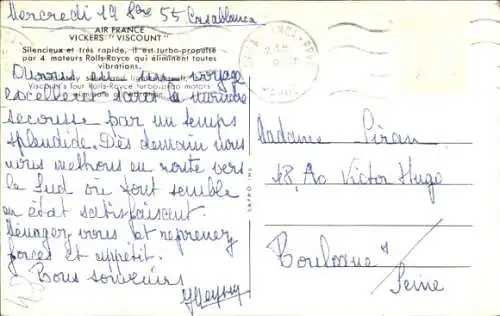 Mercredi 19 8bre 55 Casablanca
AIR FRANCE
VICKERS "VISCOUNT"
Silencieux et très rapide, il est turbo-propulsé
par 4 moteurs Rolls-Royce qui éliminent toutes
vibrations.
Avons eu un voyage
Viscount's four Rolls-Royce turbo-prop motors
excellent sans la moindre
secousse par un temps
splendide. Dès demain nous
nous mettrons en route vers
le Sud où tout semble
en état satisfaisant.
Ménagez vous et reprenez
forces et appétit.
Bons souvenirs
Madame Piran
48, Av Victor Hugo
Boulogne s/
Seine